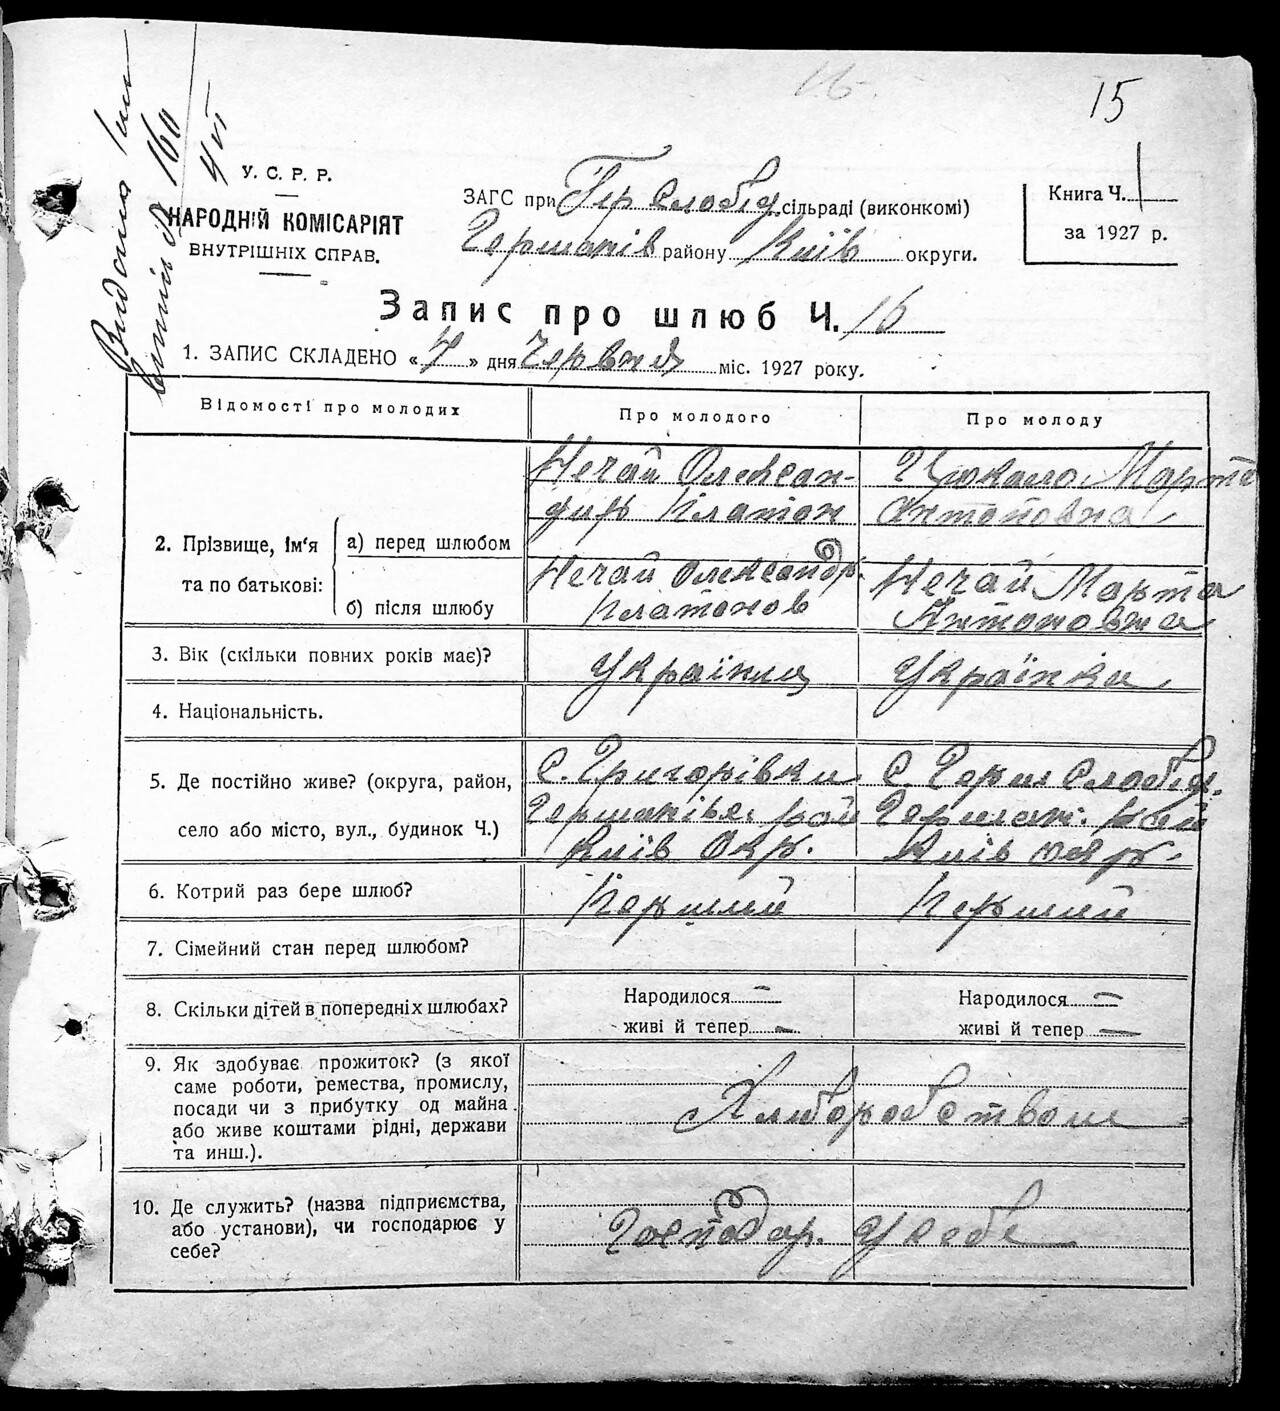 15
Видана
160
У. С. Р. Р.
НАРОДНІЙ КОМІСАРІЯТ
ВНУТРІШНІХ СПРАВ.
ЗАГС при Гер Слобід. сільраді (виконкомі)
Германів району Київ округи.
Книга Ч. 1
за 1927 р.
Запис про шлюб Ч. 16
1. ЗАПИС СКЛАДЕНО « 7 » дня Червня міс. 1927 року.
Відомості про молодих
Про молодого
Про молоду
2. Прізвище, ім‘я та по батькові:
а) перед шлюбом
Нечай Олексан-
дир Платон
Цокало Марта
Антоновна
б) після шлюбу
Нечай Олександр.
Платонов
Нечай Марта
Антоновна
3. Вік (скільки повних років має)?
Українц
Українка
4. Національність.
5. Де постійно живе? (округа, район,
село або місто, вул., будинок Ч.)
с. Григорівки
Германівсь рай
Київ Окр.
с. Герм Слобід.
Герман. рай
Київ окр.
6. Котрий раз бере шлюб?
Перший
Перший
7. Сімейний стан перед шлюбом?
8. Скільки дітей в попередніх шлюбах?
Народилося —
живі й тепер —
Народилося —
живі й тепер —
9. Як здобуває прожиток? (з якої
саме роботи, ремества, промислу,
посади чи з прибутку од майна
або живе коштами рідні, держави
та инш.).
Хліборобством
10. Де служить? (назва підприємства,
або установи), чи господарює у
себе?
Господар. у себе